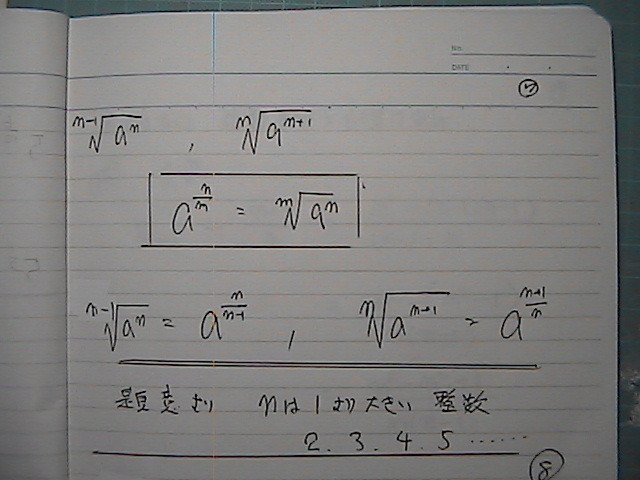 No.
DATE . .
⑦
ⁿ⁻¹√aⁿ , ⁿ√aⁿ⁺¹
a^(n/m) = ᵐ√aⁿ
ⁿ⁻¹√aⁿ = a^(n/(n-1)) , ⁿ√aⁿ⁺¹ = a^((n+1)/n)
題意より nは1より大きい 整数
2. 3. 4. 5 ......
⑧